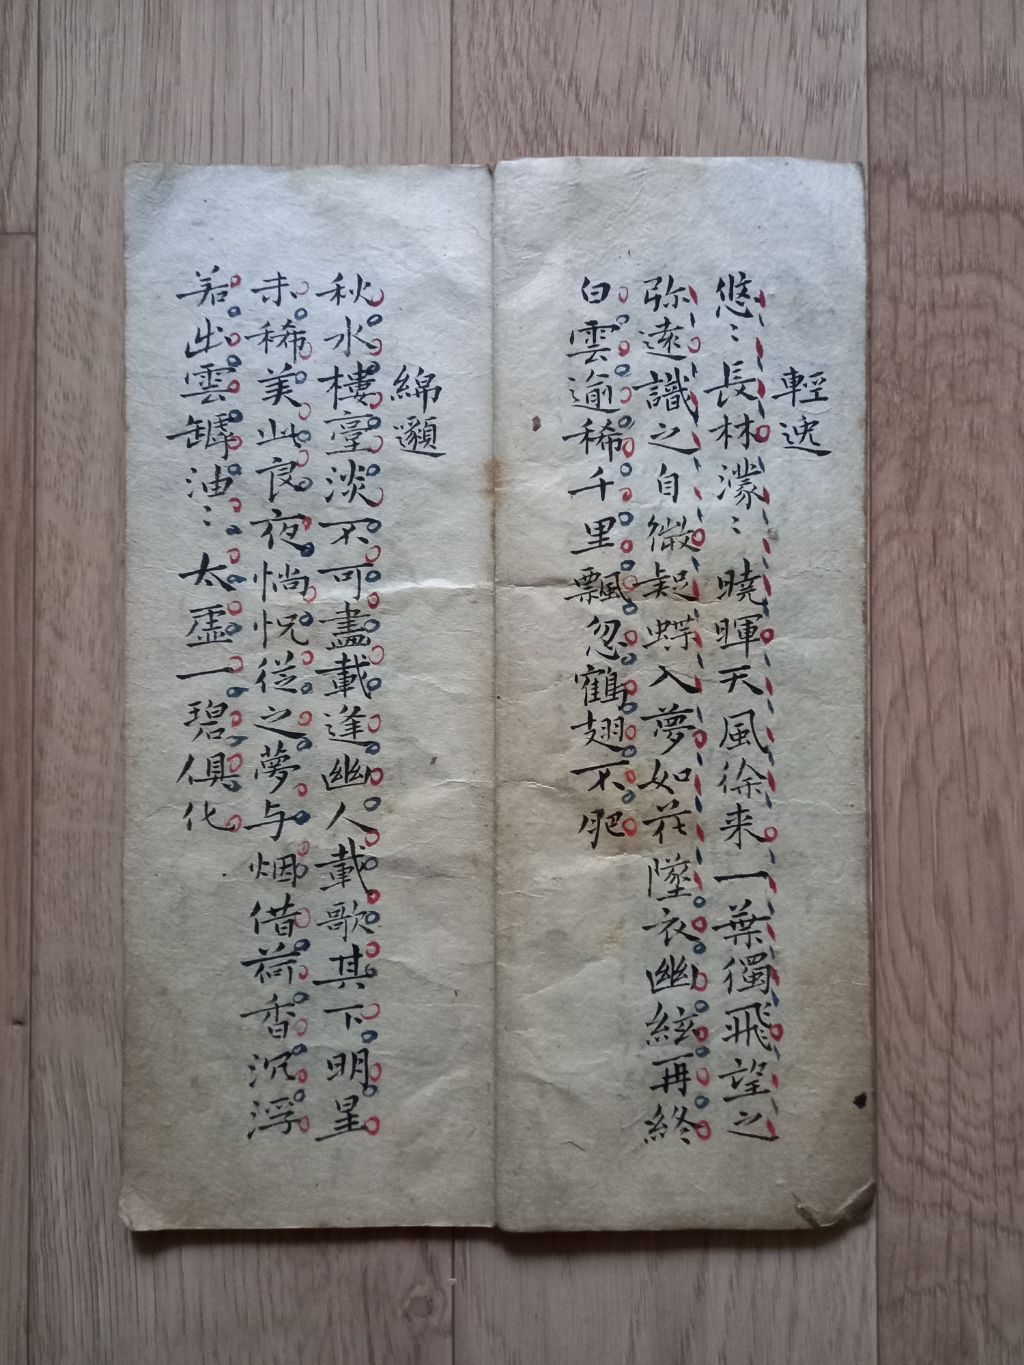 輕逸
悠〻長林濛〻曉暉天風徐来一葉獨飛望之
弥遠識之自微疑蝶入夢如花墜衣幽絃再終
白雲逾稀千里飄忽鶴翅不肥
綿邈
秋水樓臺淡不可畫載逢幽人載歌其下明星
未稀美此良夜惝怳從之夢与烟借荷香沉浮
若出雲罅油〻太虛一碧俱化